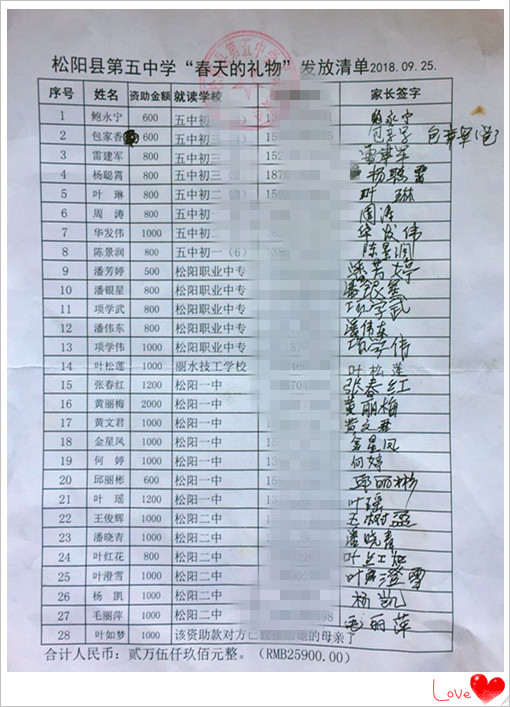 松阳县第五中学“春天的礼物”发放清单2018.09.25.
序号 姓名 资助金额 就读学校 家长签字
1 鲍永宁 600 五中初一 鲍永宁
2 包家香 600 五中初三
3 雷建军 800 五中初三 152
4 杨聪霄 800 五中初三 187
5 叶琳 800 五中初二 15 叶琳
6 周涛 800 五中初 周涛
7 华发伟 1000 五中初 华发伟
8 陈景润 800 五中初一（6） 138 陈景润
9 潘芳婷 500 松阳职业中专 潘芳婷
10 潘银星 800 松阳职业中专
11 项学武 800 松阳职业中专 项学武
12 潘伟东 800 松阳职业中专 潘伟东
13 项学伟 1000 松阳职业中专 项学伟
14 叶松莲 1000 丽水技工学校 叶松莲
15 张春红 1200 松阳一中 张春红
16 黄丽梅 2000 松阳一中 黄丽梅
17 黄文君 1000 松阳一中 黄文君
18 金星凤 1000 松阳一中 金星凤
19 何婷 1000 松阳一中 何婷
20 邱丽彬 600 松阳一中 邱丽彬
21 叶瑶 1200 松阳一中 叶瑶
22 王俊辉 1000 松阳二中
23 潘晓青 1000 松阳二中 潘晓青
24 叶红花 800 松阳二中 叶红花
25 叶澄雪 1000 松阳二中
26 杨凯 1000 松阳二中 杨凯
27 毛丽萍 1000 松阳二中 98 毛丽萍
28 叶如梦 1000 该资助款对方已 的母亲了
合计人民币：贰万伍仟玖佰元整。（RMB25900.00）
Love